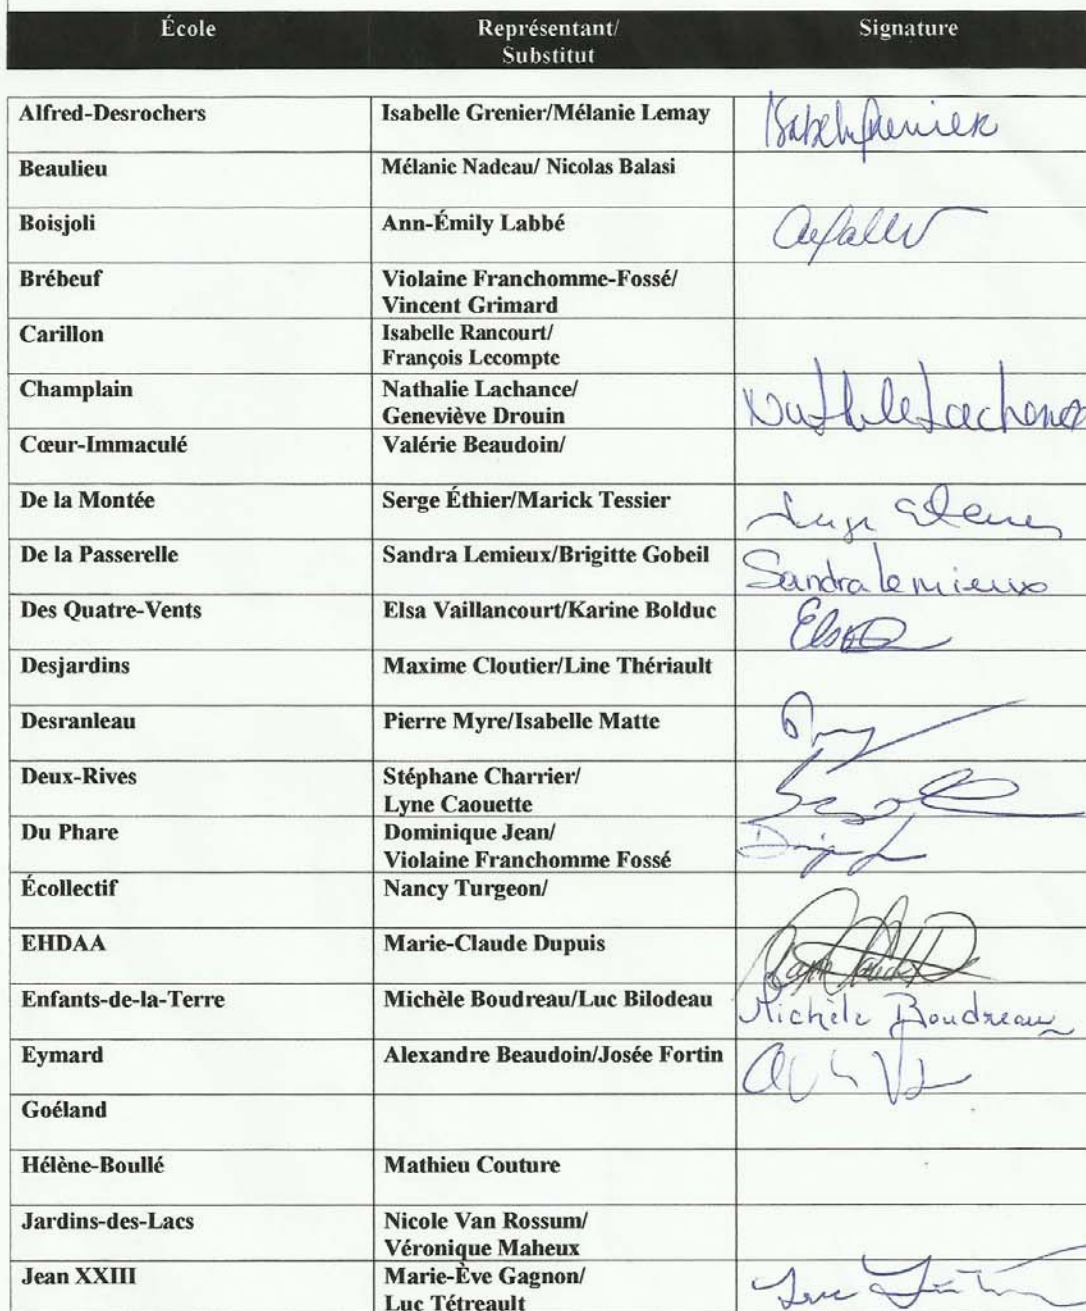 École Représentant/ Signature
Substitut
Alfred-Desrochers Isabelle Grenier/Mélanie Lemay Isabelle Grenier
Beaulieu Mélanie Nadeau/ Nicolas Balasi
Boisjoli Ann-Émily Labbé
Brébeuf Violaine Franchomme-Fossé/
Vincent Grimard
Carillon Isabelle Rancourt/
François Lecompte
Champlain Nathalie Lachance/ Nathalie Lachance
Geneviève Drouin
Cœur-Immaculé Valérie Beaudoin/
De la Montée Serge Éthier/Marick Tessier
De la Passerelle Sandra Lemieux/Brigitte Gobeil Sandra Lemieux
Des Quatre-Vents Elsa Vaillancourt/Karine Bolduc Elsa
Desjardins Maxime Cloutier/Line Thériault
Desranleau Pierre Myre/Isabelle Matte
Deux-Rives Stéphane Charrier/
Lyne Caouette
Du Phare Dominique Jean/
Violaine Franchomme Fossé
Écollectif Nancy Turgeon/
EHDAA Marie-Claude Dupuis
Enfants-de-la-Terre Michèle Boudreau/Luc Bilodeau Michèle Boudreau
Eymard Alexandre Beaudoin/Josée Fortin
Goéland
Hélène-Boullé Mathieu Couture
Jardins-des-Lacs Nicole Van Rossum/
Véronique Maheux
Jean XXIII Marie-Ève Gagnon/
Luc Tétreault